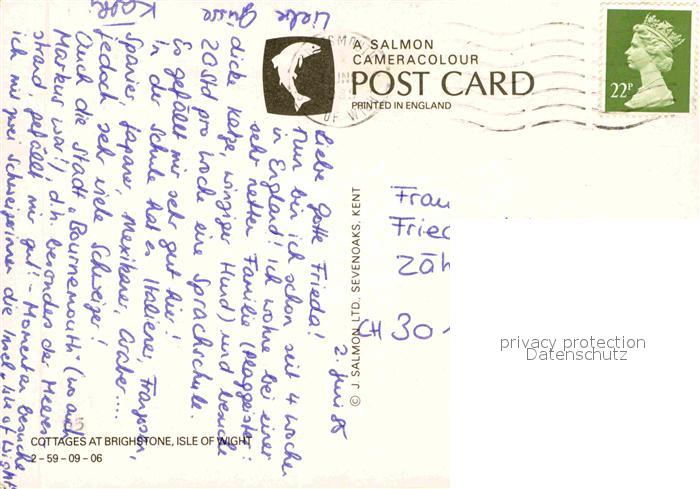 A SALMON
CAMERACOLOUR
POST CARD
PRINTED IN ENGLAND
22P
2. Juni 85
Liebe Gotte Frieda!
Nun bin ich schon seit 4 Wochen
in England! Ich wohne bei einer
sehr netten Familie (Plaggeister:
dicke Katze, winziger Hund) und besuche
20 Std pro Woche eine Sprachschule.
Es gefällt mir sehr gut hier!
In der Schule hat es Italiener, Franzosen,
Spanier, Japaner, Mexikaner, Araber ....
jedoch sehr viele Schweizer!
Auch die Stadt "Bournemouth" (wo auch
Markus war!), d.h. besonders der Meeres-
strand gefällt mir gut! - Momentan besuche
ich mit zwei Schweizerinnen die Insel "Isle of Wight"
Liebe
Grüsse
Frau
Fried
Zäh
CH 30
© J. SALMON LTD., SEVENOAKS, KENT
privacy protection
Datenschutz
65
COTTAGES AT BRIGHSTONE, ISLE OF WIGHT
2-59-09-06